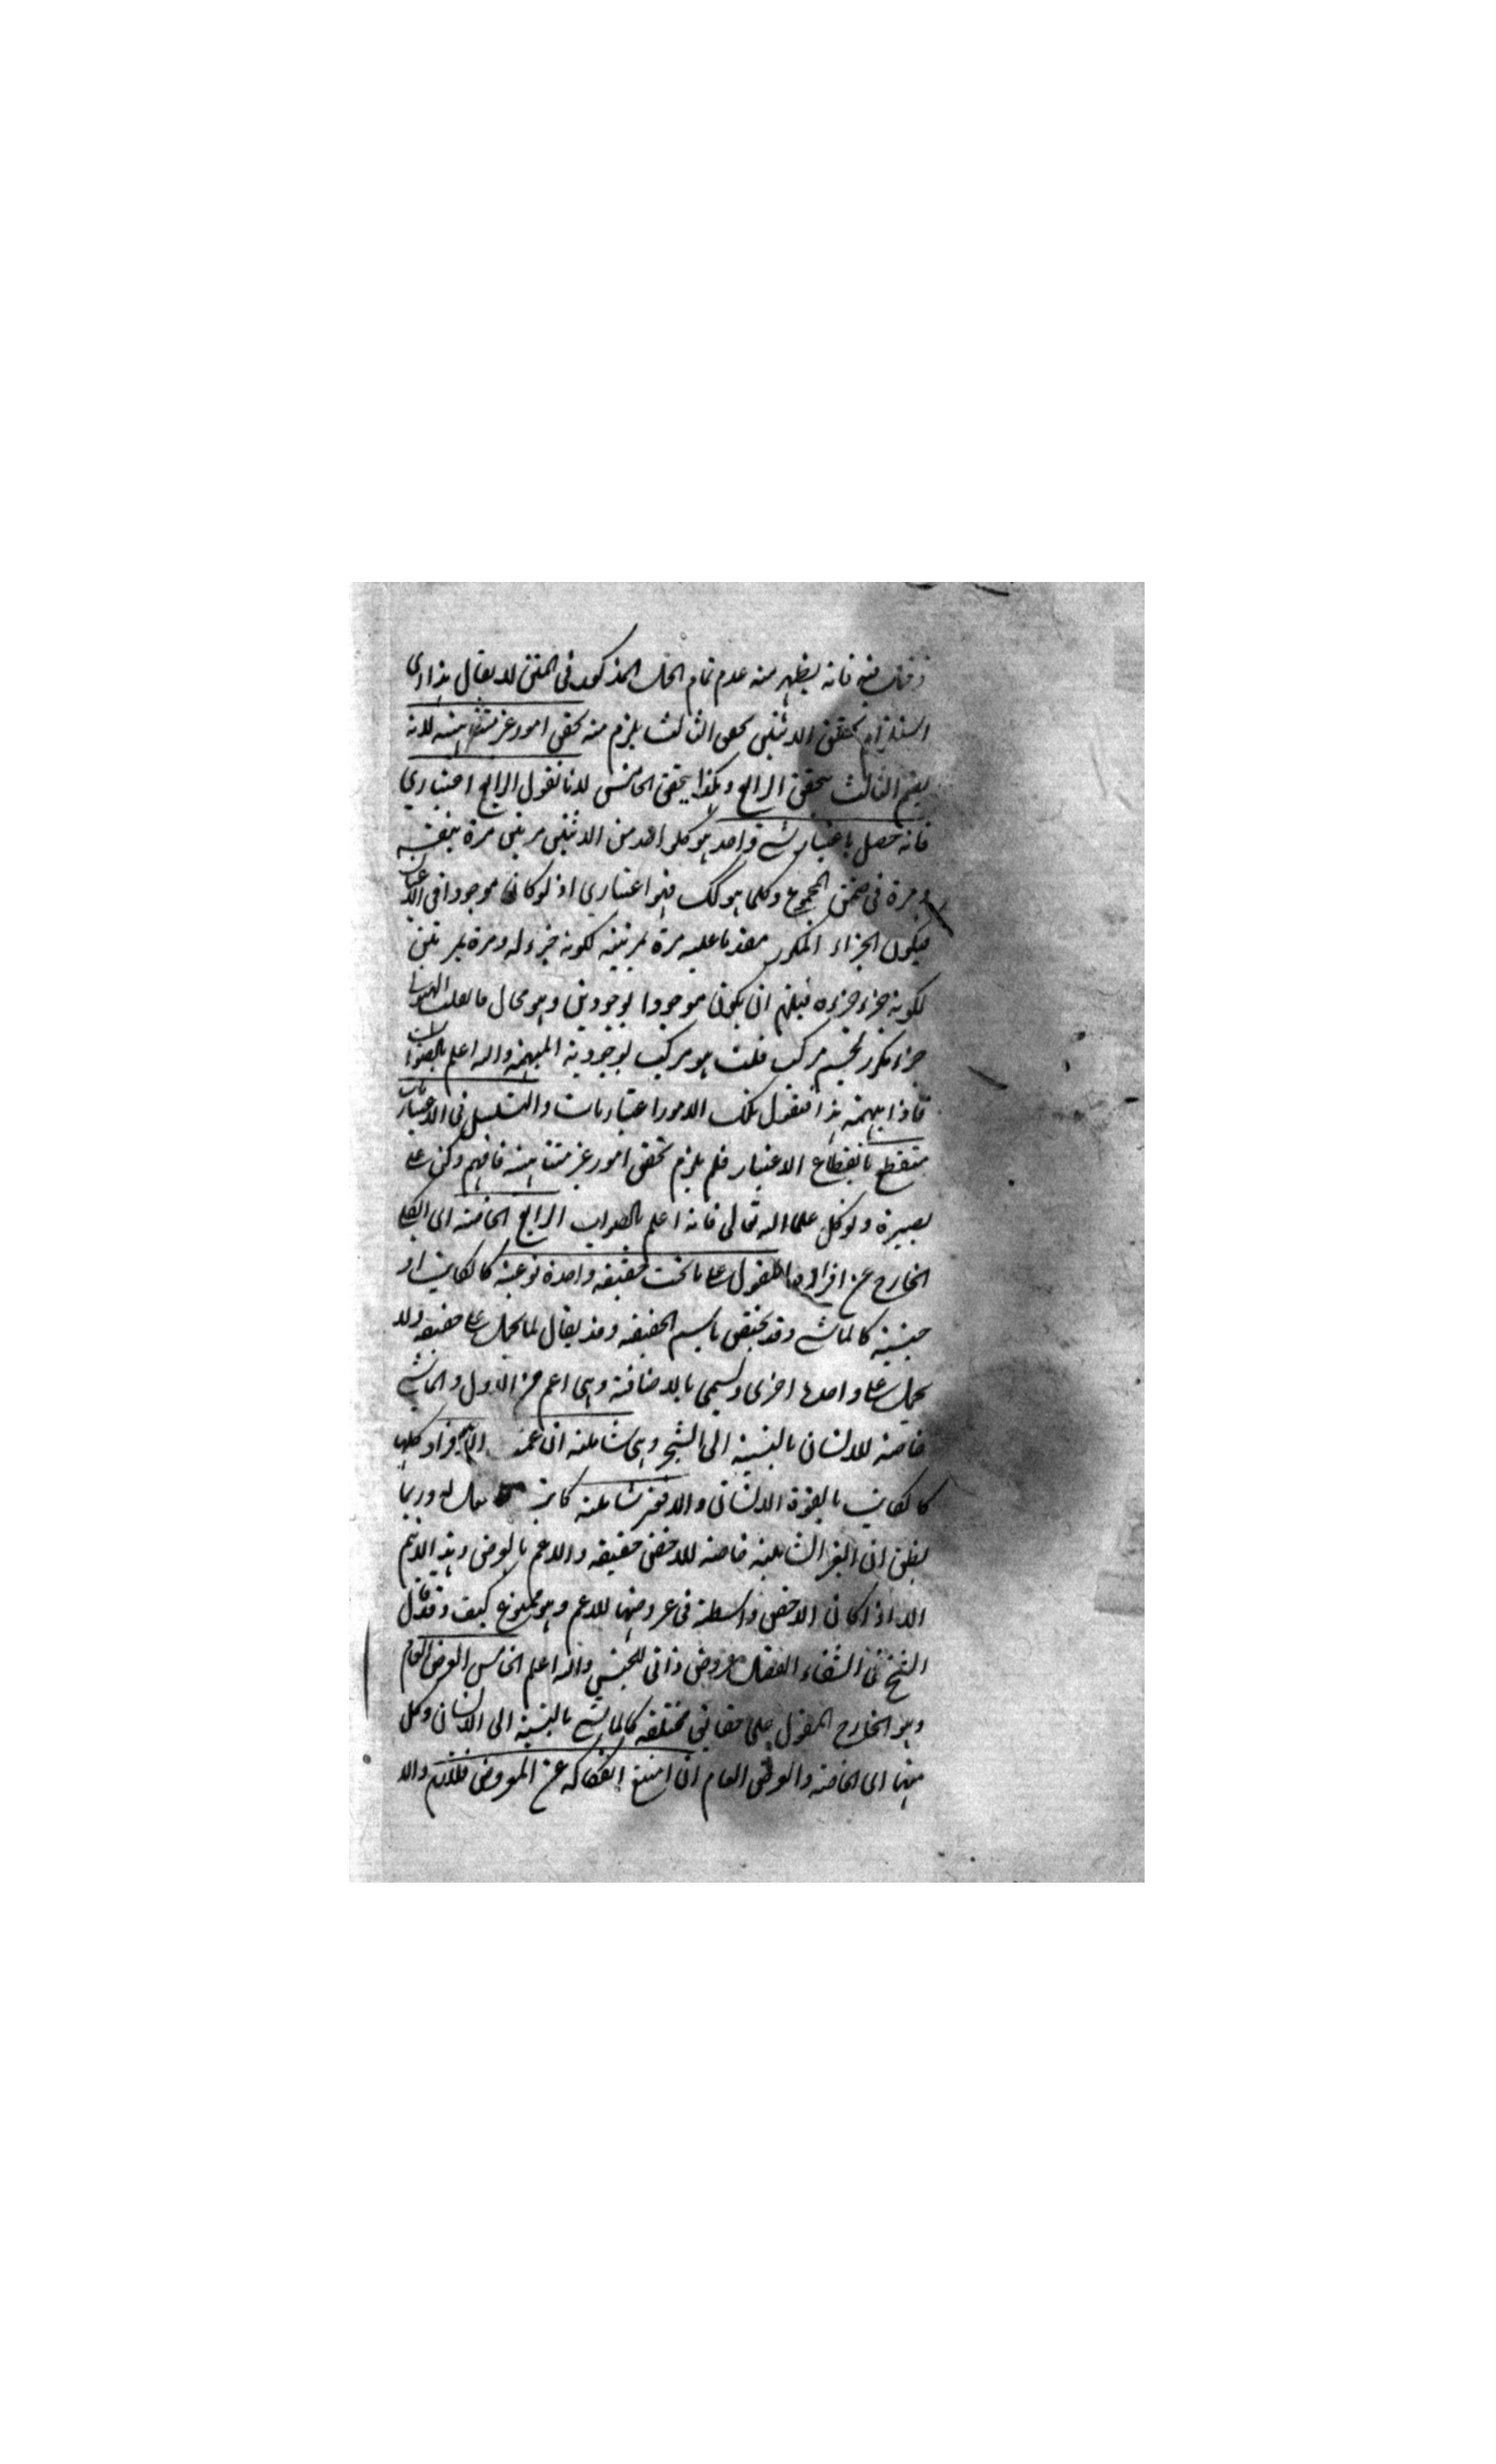 فيه فانه يظهر منه عدم تمام الحل المذكور في المتن لا يقال هذا اى
استلزام تحقق الاثنين تحقق الثالث يلزم منه تحقق امور غر متناهيه لانه
بضم الثالث يتحقق الرابع وهكذا يتحقق الخامس لانا نقول الرابع اعتباري
فانه حصل باعتبار شئ واحد هو كل واحد من الاثنين مرتين مرة بنفسه
ومرة في ضمن المجموع وكلما هو كك فهو اعتباري اذ لو كان موجودا في الاعيان
فيكون الجزاء المكرر مقدما عليه مرة بمرتبة لكونه جزء له ومرة بمرتبتين
لكونه جزء جزءه فيلزم ان يكون موجودا بوجودين وهو محال فان قلت الهيولى
جزء مكرر لجسم مركب قلت هو مركب بوجوديه المبهمة والله اعلم بالصواب
فاذا فنقول تلك الامور اعتباريات والتسلسل في الاعتباريات
منقطع بانقطاع الاعتبار فلم يلزم تحقق امور غر متناهيه فافهم وكن على
بصيرة وتوكل على الله تعالى فانه اعلم بالصواب الرابع الخاصه اى الكلى
الخارج عن افراد المقول على ما تحت حقيقه واحدة نوعية كالكاتب او
جنسية كالماشے وقد يختص باسم الحقيقه وقد يقال لما يحمل على حقيقه ولا
يحمل على واحدة اخرى ويسمى بالاضافة وهى اعم من الاول والماشے
خاصه للانسان بالنسبة الى الشجر وهى شاملة ان عمت الافراد كلها
كالكاتب بالقوة للانسان والا فغر شاملة كاتب له وربما
يظن ان الغر الشاملة خاصه للاخص حقيقه والاعم بالعرض وهذا لا يتم
الا اذا كان الاخص واسطة في عروضها للاعم وهو ممنوع كيف وقد قال
الشيخ في الشفاء الفصل عروض ذاتى للجنس والله اعلم الخامس العرض العام
وهو الخارج المقول على حقايق مختلفه كالماشے بالنسبة الى الانسان وكل
منهما اى الخاصه والعرض العام ان امتنع انفكاكه عن المعروض فلازم والا